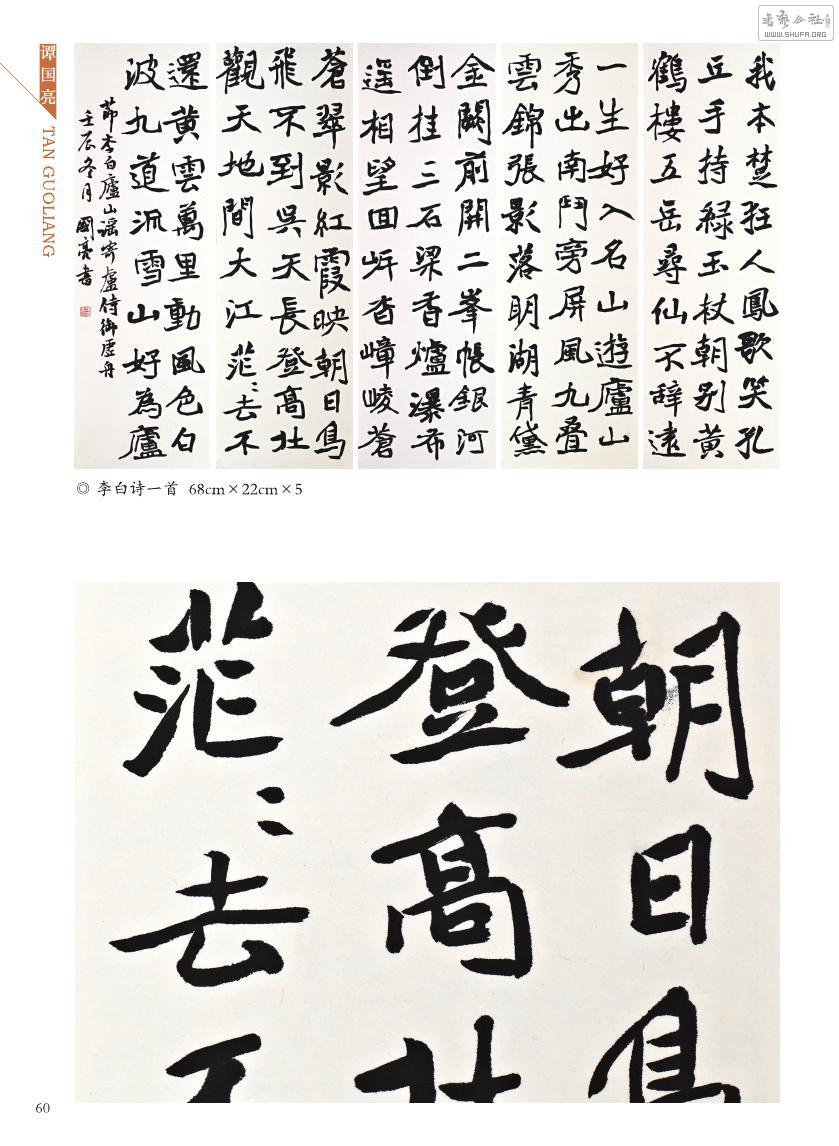 书艺公社
WWW.SHUFA.ORG
谭国亮
TAN GUOLIANG
我本楚狂人鳳歌笑孔
丘手持綠玉杖朝别黄
鶴樓五岳尋仙不辞遠
一生好入名山遊廬山
秀出南鬥旁屏風九叠
雲錦張影落明湖青黛
金闕前開二峯帳銀河
倒挂三石梁香爐瀑布
遥相望回𡵆沓嶂崚蒼
蒼翠影紅霞映朝日鳥
飛不到吳天長登高壮
觀天地間大江茫〻去不
還黄雲萬里動風色白
波九道流雪山好為廬
節李白廬山謡寄盧侍御虚舟
壬辰冬月國亮書
◎ 李白诗一首 68cm×22cm×5
朝日鳥
登高壮
茫〻去不
60